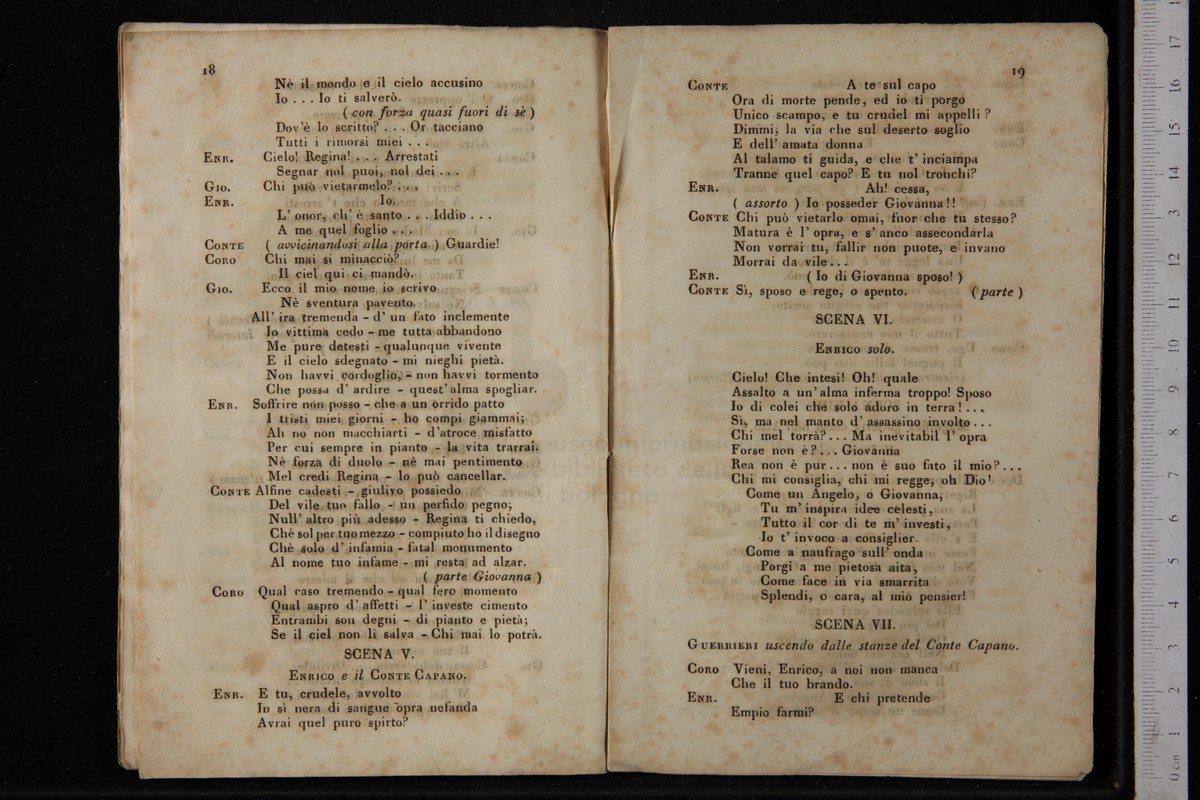 18
Nè il mondo e il cielo accusino
Io . . . Io ti salverò.
( con forza quasi fuori di sè )
Dov'è lo scritto? . . . Or tacciano
Tutti i rimorsi miei . . .
ENR. Cielo! Regina! . . . Arrestati
Segnar nol puoi, nol dei . . .
GIO. Chi può vietarmelo? . . .
ENR. Io.
L' onor, ch' è santo . . . Iddio . . .
A me quel foglio . . .
CONTE ( avvicinandosi alla porta ) Guardie!
CORO Chi mai si minacciò?
Il ciel qui ci mandò.
GIO. Ecco il mio nome io scrivo
Nè sventura pavento.
All' ira tremenda - d' un fato inclemente
Io vittima cedo - me tutta abbandono
Me pure detesti - qualunque vivente
E il cielo sdegnato - mi nieghi pietà.
Non havvi cordoglio, - non havvi tormento
Che possa d' ardire - quest' alma spogliar.
ENR. Soffrire non posso - che a un orrido patto
I tristi miei giorni - ho compi giammai;
Ah no non macchiarti - d'atroce misfatto
Per cui sempre in pianto - la vita trarrai.
Nè forza di duolo - nè mai pentimento
Mel credi Regina - lo può cancellar.
CONTE Alfine cadesti - giulivo possiedo
Del vile tuo fallo - un perfido pegno;
Null' altro più adesso - Regina ti chiedo,
Chè sol per tuo mezzo - compiuto ho il disegno
Chè solo d' infamia - fatal monumento
Al nome tuo infame - mi resta ad alzar.
( parte Giovanna )
CORO Qual caso tremendo - qual fero momento
Qual aspro d' affetti - l' investe cimento
Entrambi son degni - di pianto e pietà;
Se il ciel non li salva - Chi mai lo potrà.
SCENA V.
ENRICO e il CONTE CAPANO.
ENR. E tu, crudele, avvolto
In sì nera di sangue opra nefanda
Avrai quel puro spirto?
19
CONTE A te sul capo
Ora di morte pende, ed io ti porgo
Unico scampo, e tu crudel mi appelli ?
Dimmi; la via che sul deserto soglio
E dell' amata donna
Al talamo ti guida, e che t' inciampa
Tranne quel capo? E tu nol tronchi?
ENR. Ah! cessa,
( assorto ) Io posseder Giovanna!!
CONTE Chi può vietarlo omai, fuor che tu stesso?
Matura è l' opra, e s' anco assecondarla
Non vorrai tu, fallir non puote, e invano
Morrai da vile . . .
ENR. ( Io di Giovanna sposo! )
CONTE Sì, sposo e rege, o spento. ( parte )
SCENA VI.
ENRICO solo.
Cielo! Che intesi! Oh! quale
Assalto a un' alma inferma troppo! Sposo
Io di colei che solo adoro in terra ! . . .
Sì, ma nel manto d' assassino involto . . .
Chi mel torrà? . . . Ma inevitabil l' opra
Forse non è ? . . . Giovanna
Rea non è pur . . . non è suo fato il mio? . . .
Chi mi consiglia, chi mi regge, oh Dio!
Come un Angelo, o Giovanna,
Tu m' inspira idee celesti,
Tutto il cor di te m' investi,
Io t' invoco a consiglier.
Come a naufrago sull' onda
Porgi a me pietosa aita,
Come face in via smarrita
Splendi, o cara, al mio pensier!
SCENA VII.
GUERRIERI uscendo dalle stanze del Conte Capano.
CORO Vieni, Enrico, a noi non manca
Che il tuo brando.
ENR. E chi pretende
Empio farmi?
museo internazionale
e biblioteca della
di bologna
0 cm 1 2 3 4 5 6 7 8 9 10 11 12 13 14 15 16 17